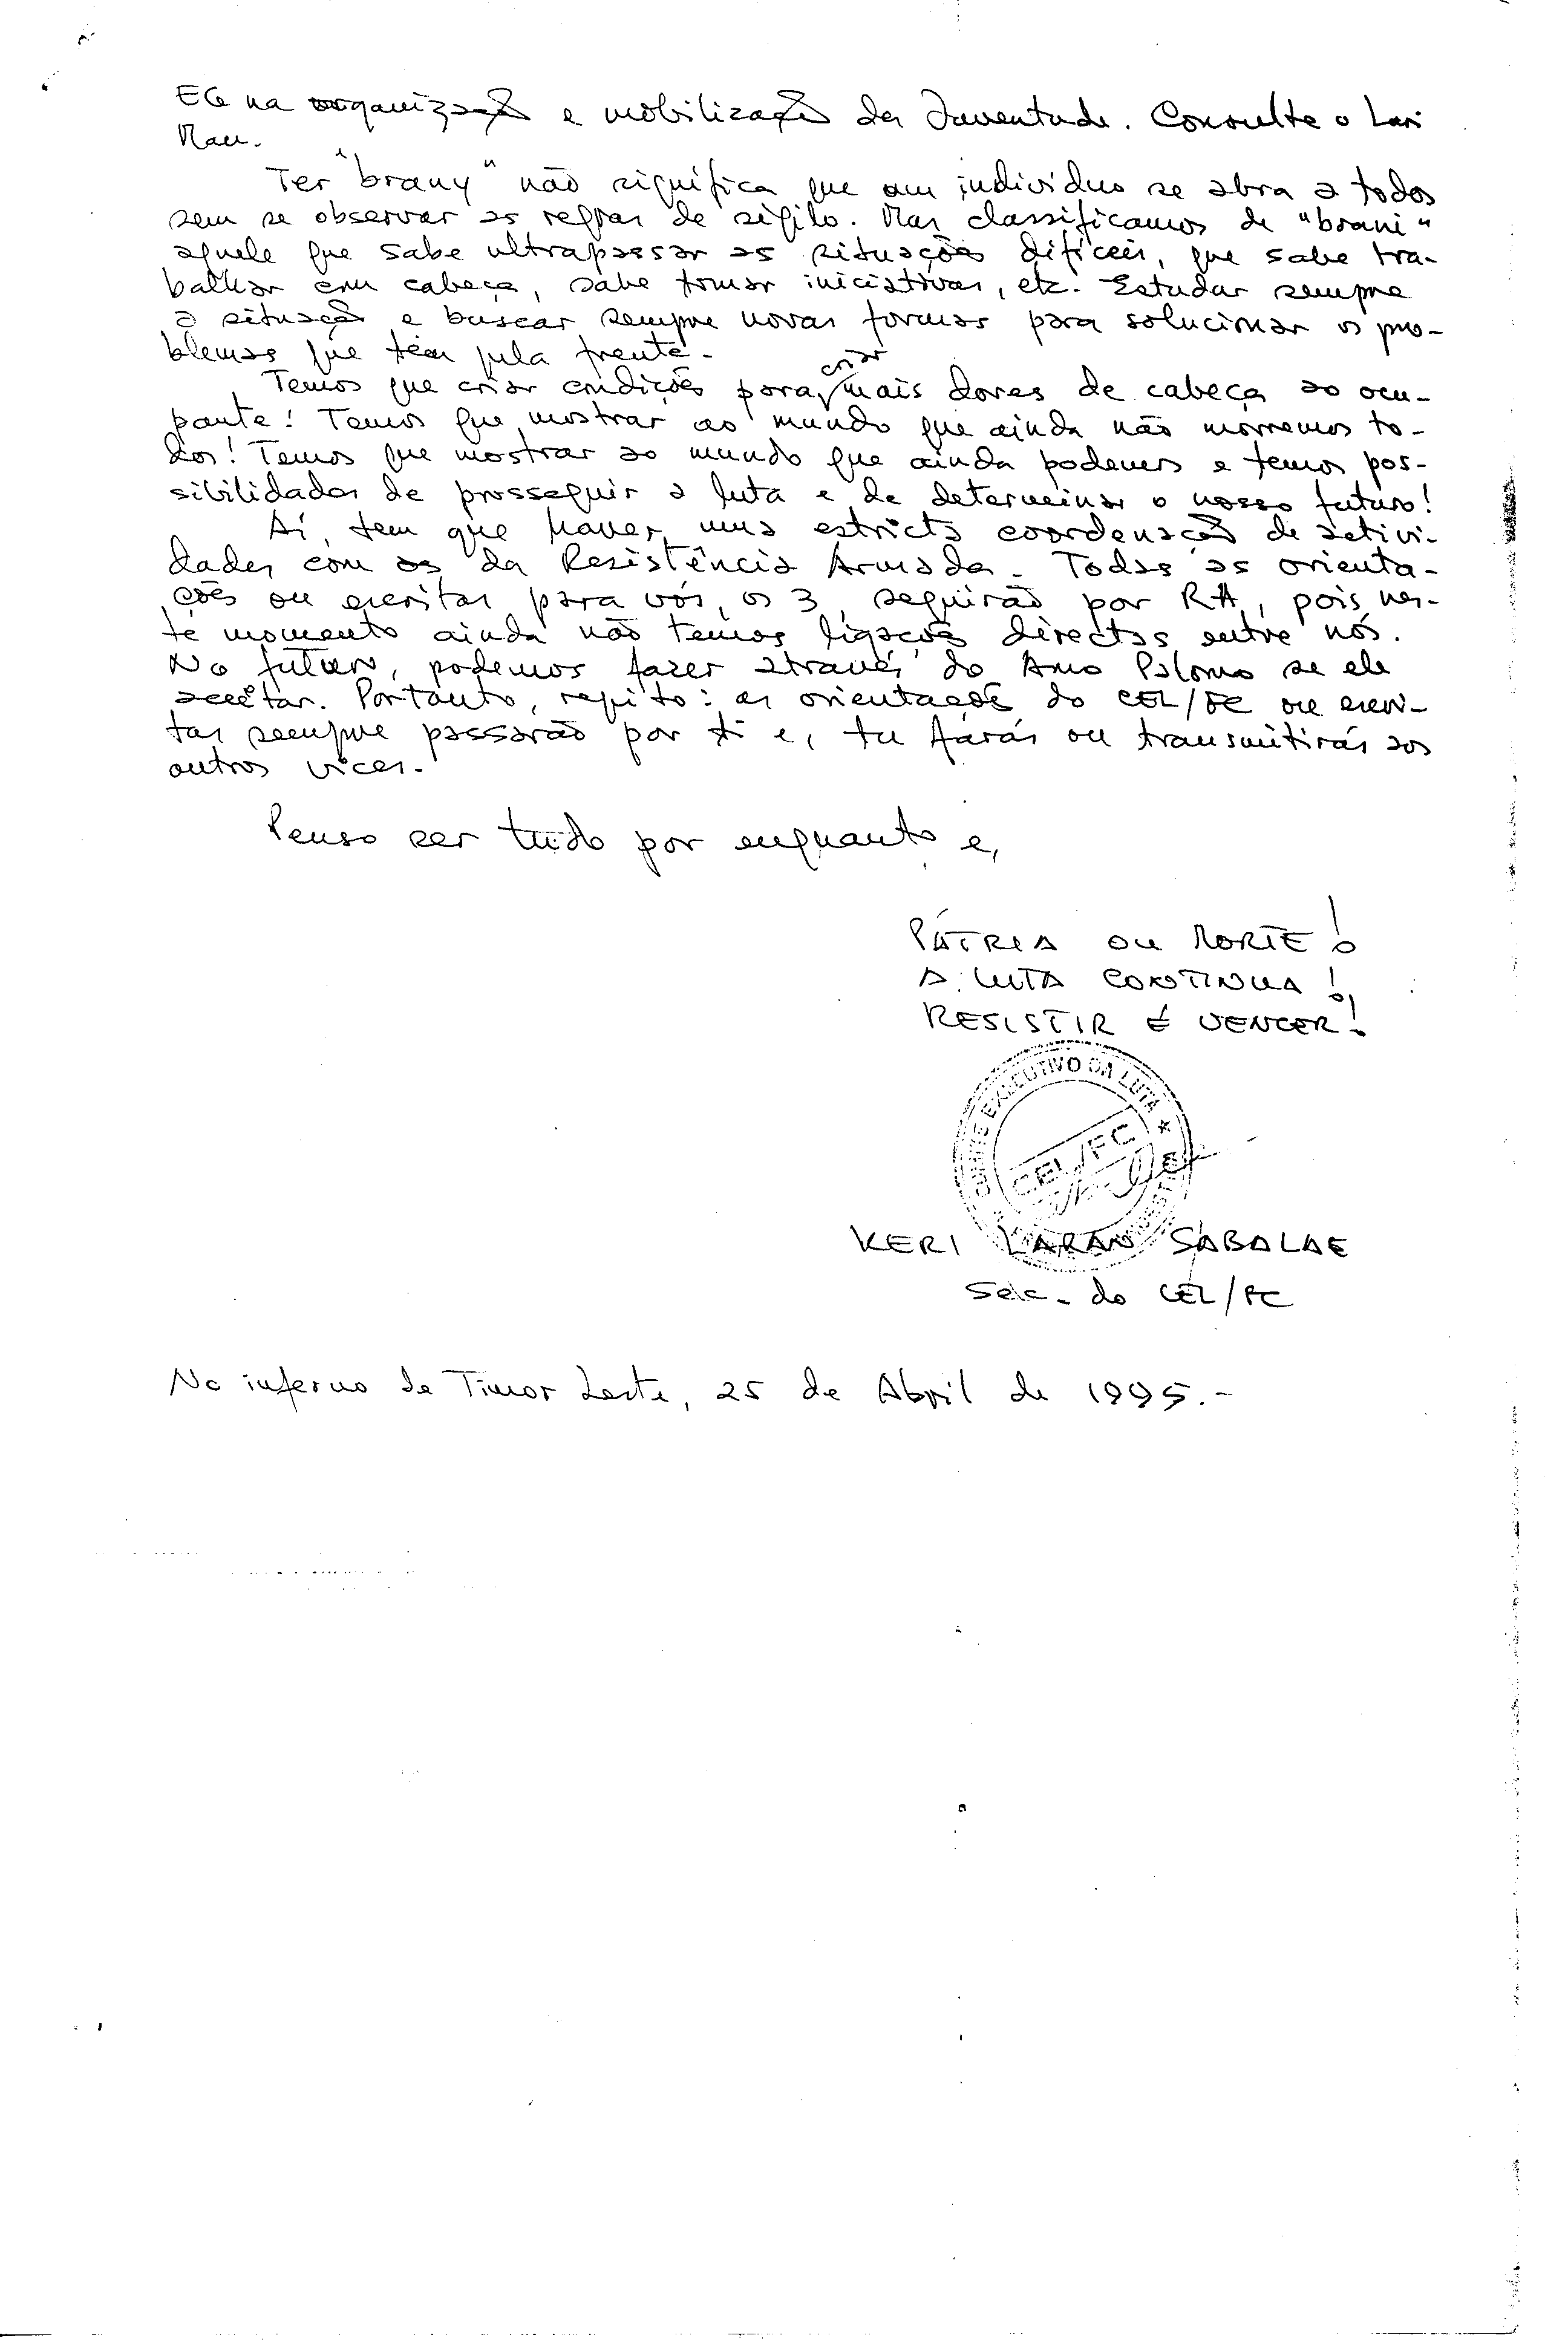 EG na organização e mobilização da Juventude. Consulte o Lari
Mau.
Ter "brany" não significa que um individuo se abra a todos
sem se observar as regras de sigilo. Mas classificamos de "brani"
aquele que sabe ultrapassar as situações difíceis, que sabe tra-
balhar com cabeça, sabe tomar iniciativas, etc. Estudar sempre
a situação e buscar sempre novas formas para solucionar os pro-
blemas que têm pela frente.
Temos que criar condições para criar mais dores de cabeça ao ocu-
pante! Temos que mostrar ao mundo que ainda não morremos to-
dos! Temos que mostrar ao mundo que ainda podemos e temos pos-
sibilidades de prosseguir a luta e de determinar o nosso futuro!
Aí, tem que haver uma estricta coordenação de activi-
dades com as da Resistência Armada. Todas as orienta-
ções ou escritas para vós, os 3, seguirão por RH, pois nes-
te momento ainda não temos ligações directas entre nós.
No futuro, podemos fazer através do Amo Palomo se ele
aceitar. Portanto, repito: as orientações do CEL/FC ou escri-
tas sempre passarão por ti e, tu farás ou transmitirás aos
outros vices.
Penso ser tudo por enquanto e,
PÁTRIA OU MORTE!
A LUTA CONTINUA!
RESISTIR É VENCER!
EXECUTIVO DA LUTA
CEL/FC
KERI LARAN SABALAE
Sec. do CEL/FC
No inferno de Timor Leste, 25 de Abril de 1995.-